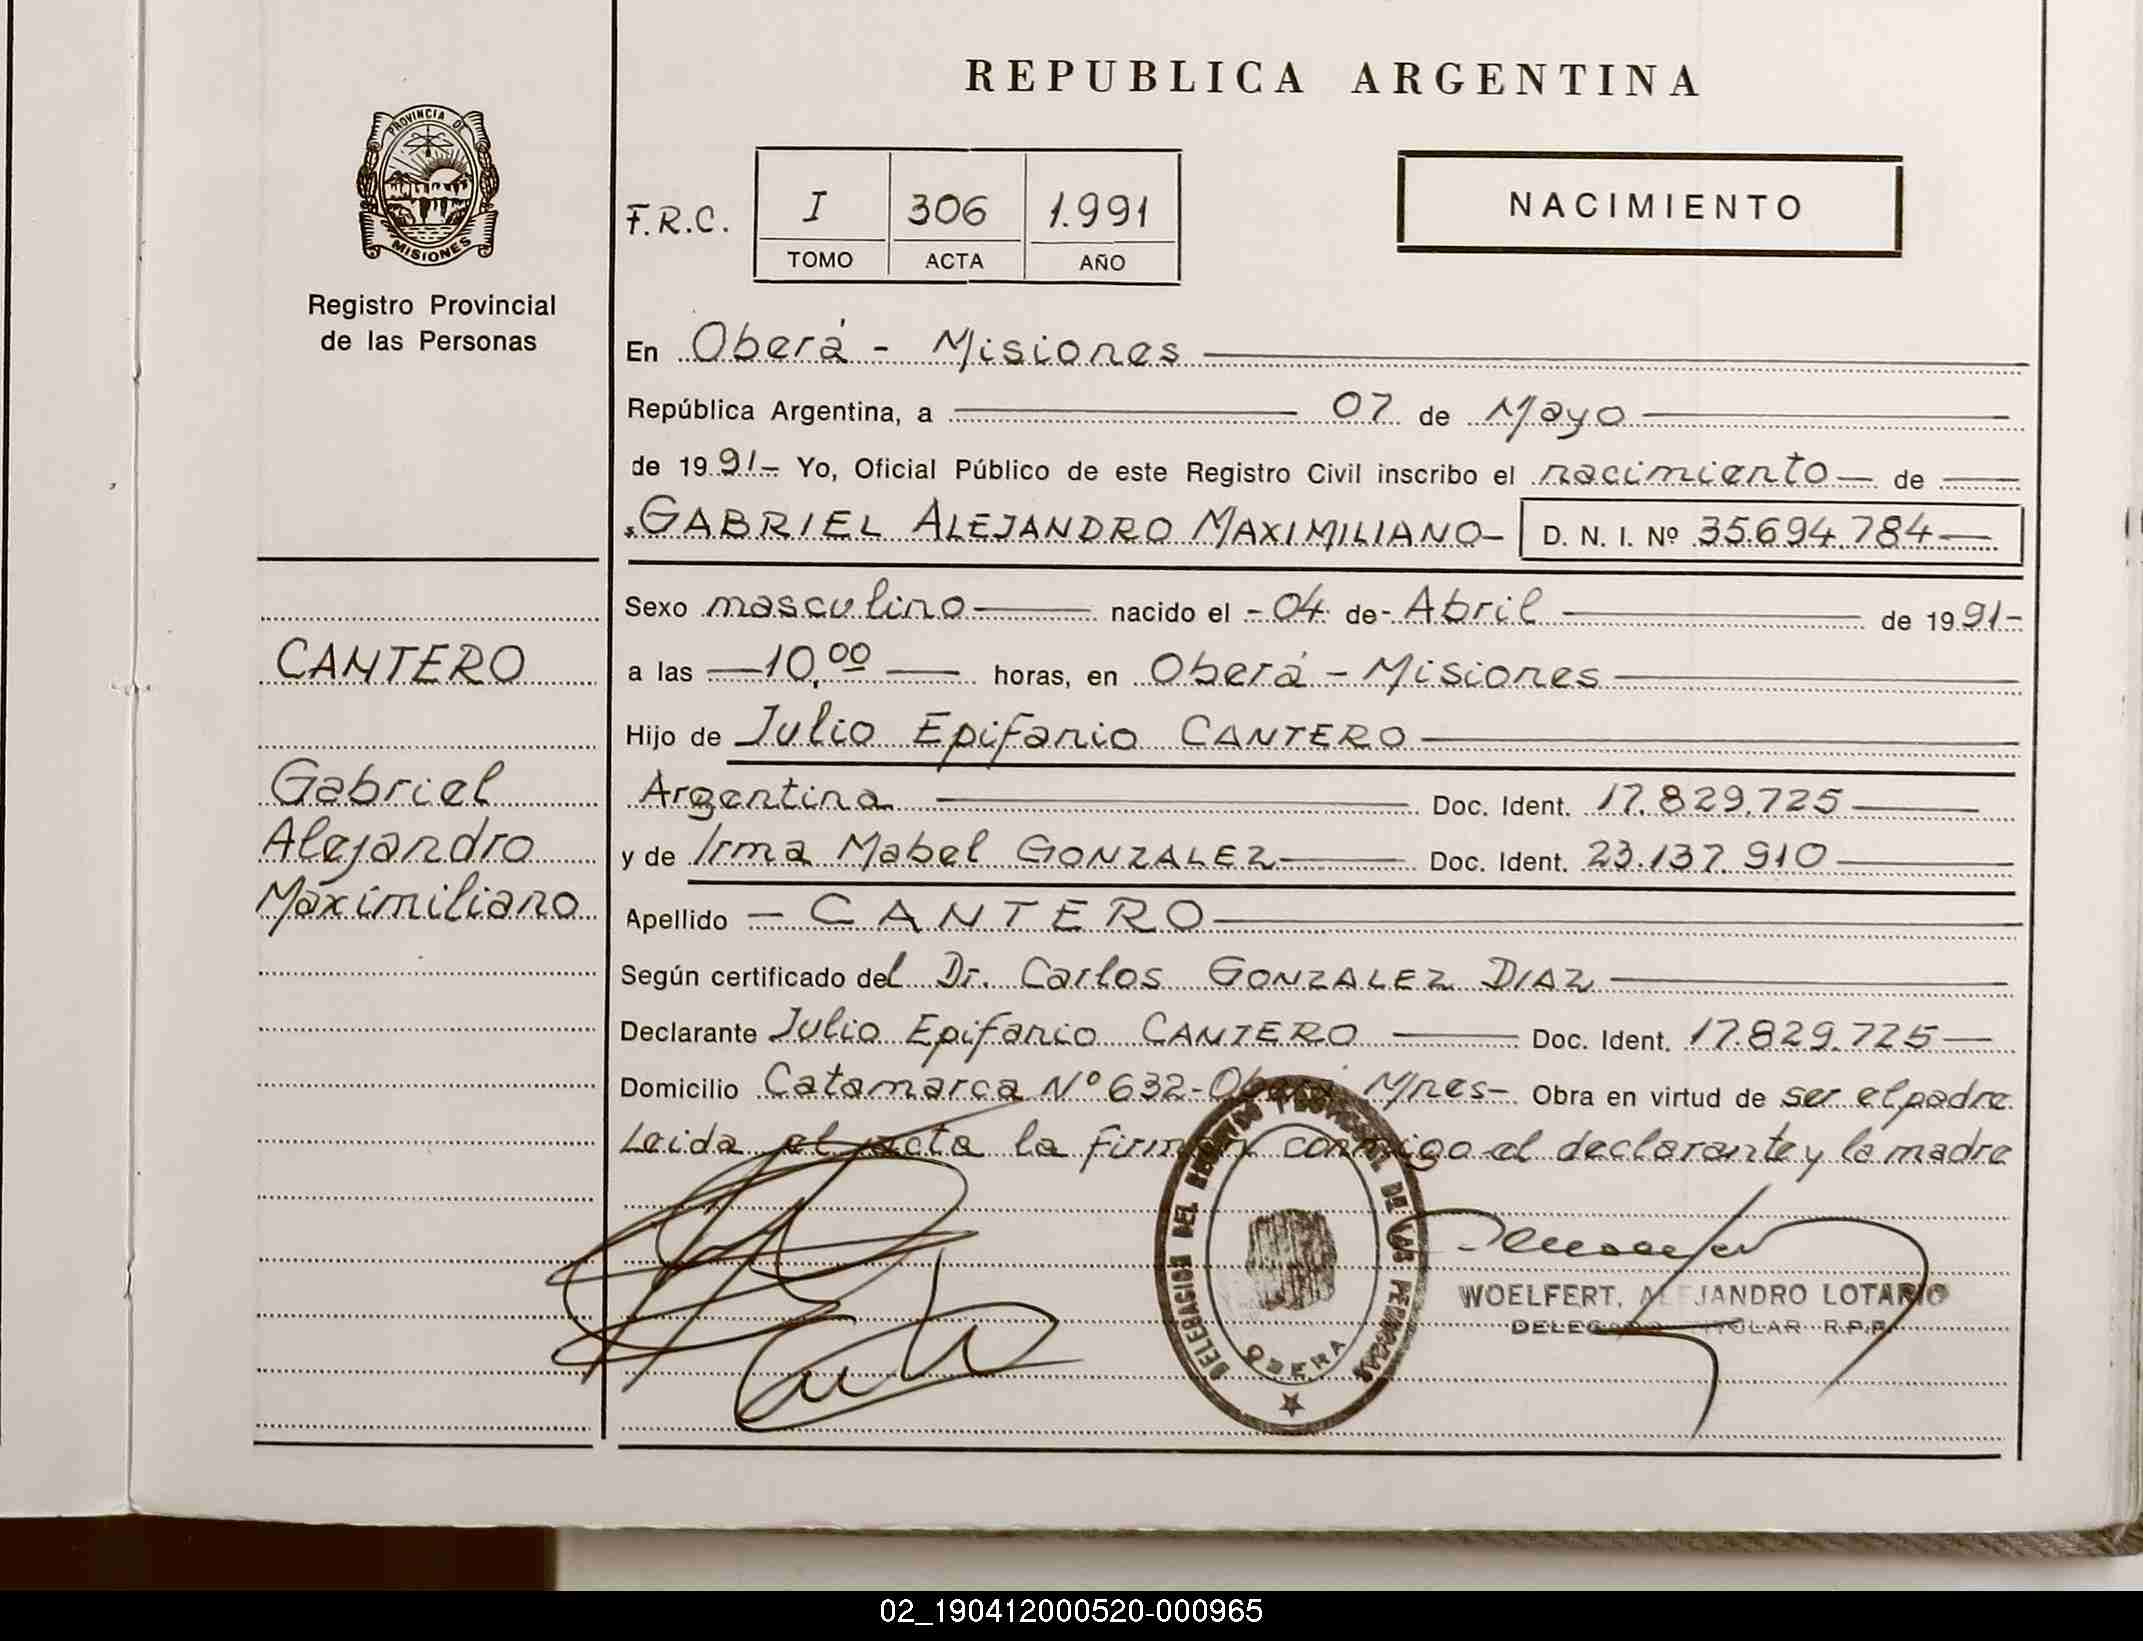 REPUBLICA ARGENTINA
PROVINCIA DE
MISIONES
Registro Provincial
de las Personas
F.R.C.
I 306 1.991
TOMO ACTA AÑO
NACIMIENTO
En Oberá - Misiones
República Argentina, a 07 de Mayo
de 1991- Yo, Oficial Público de este Registro Civil inscribo el nacimiento de
GABRIEL ALEJANDRO MAXIMILIANO- D. N. I. Nº 35.694.784
Sexo masculino nacido el - 04 de - Abril de 1991-
CANTERO
a las 10,00 horas, en Oberá - Misiones
Hijo de Julio Epifanio CANTERO
Gabriel
Alejandro
Maximiliano
Argentina Doc. Ident. 17.829.725
y de Irma Mabel GONZALEZ Doc. Ident. 23.137.910
Apellido - CANTERO
Según certificado del Dr. Carlos GONZALEZ DIAZ
Declarante Julio Epifanio CANTERO Doc. Ident. 17.829.725
Domicilio Catamarca Nº 632- Oberá Mnes- Obra en virtud de ser el padre
Leida el acta la firman conmigo el declarante y la madre
DELEGACION DEL REGISTRO PROVINCIAL DE LAS PERSONAS
OBERA
WOELFERT, ALEJANDRO LOTARIO
DELEGADO TITULAR R.P.P.
02_190412000520-000965